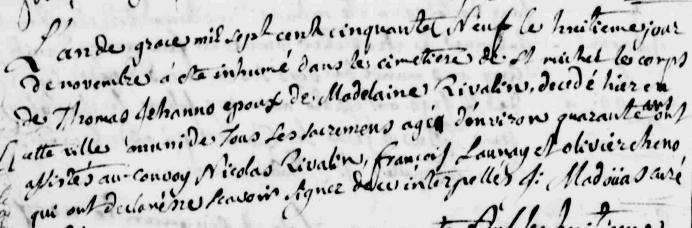 L'an de grace mil sept cent cinquante Neuf le huitieme jour
de novembre a eté inhumé dans le cimetiere de St michel le corps
de Thomas Jehanno epoux de Madelaine Rivalin, decedé hier en
cette ville muni de Tous les sacremens agé d'environ quarante ans ont
assistés au convoy Nicolas Rivalin, françois Launay et olivier cheno
qui ont declaré ne scavoir signer de ce interpellés J: Madouas curé